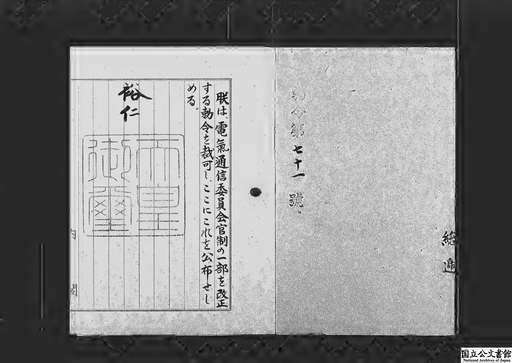 勅令第七十一號
朕は、電氣通信委員会官制の一部を改正
する勅令を裁可し、ここにこれを公布せし
める。
裕仁
天皇
御璽
内閣
国立公文書館
National Archives of Japan